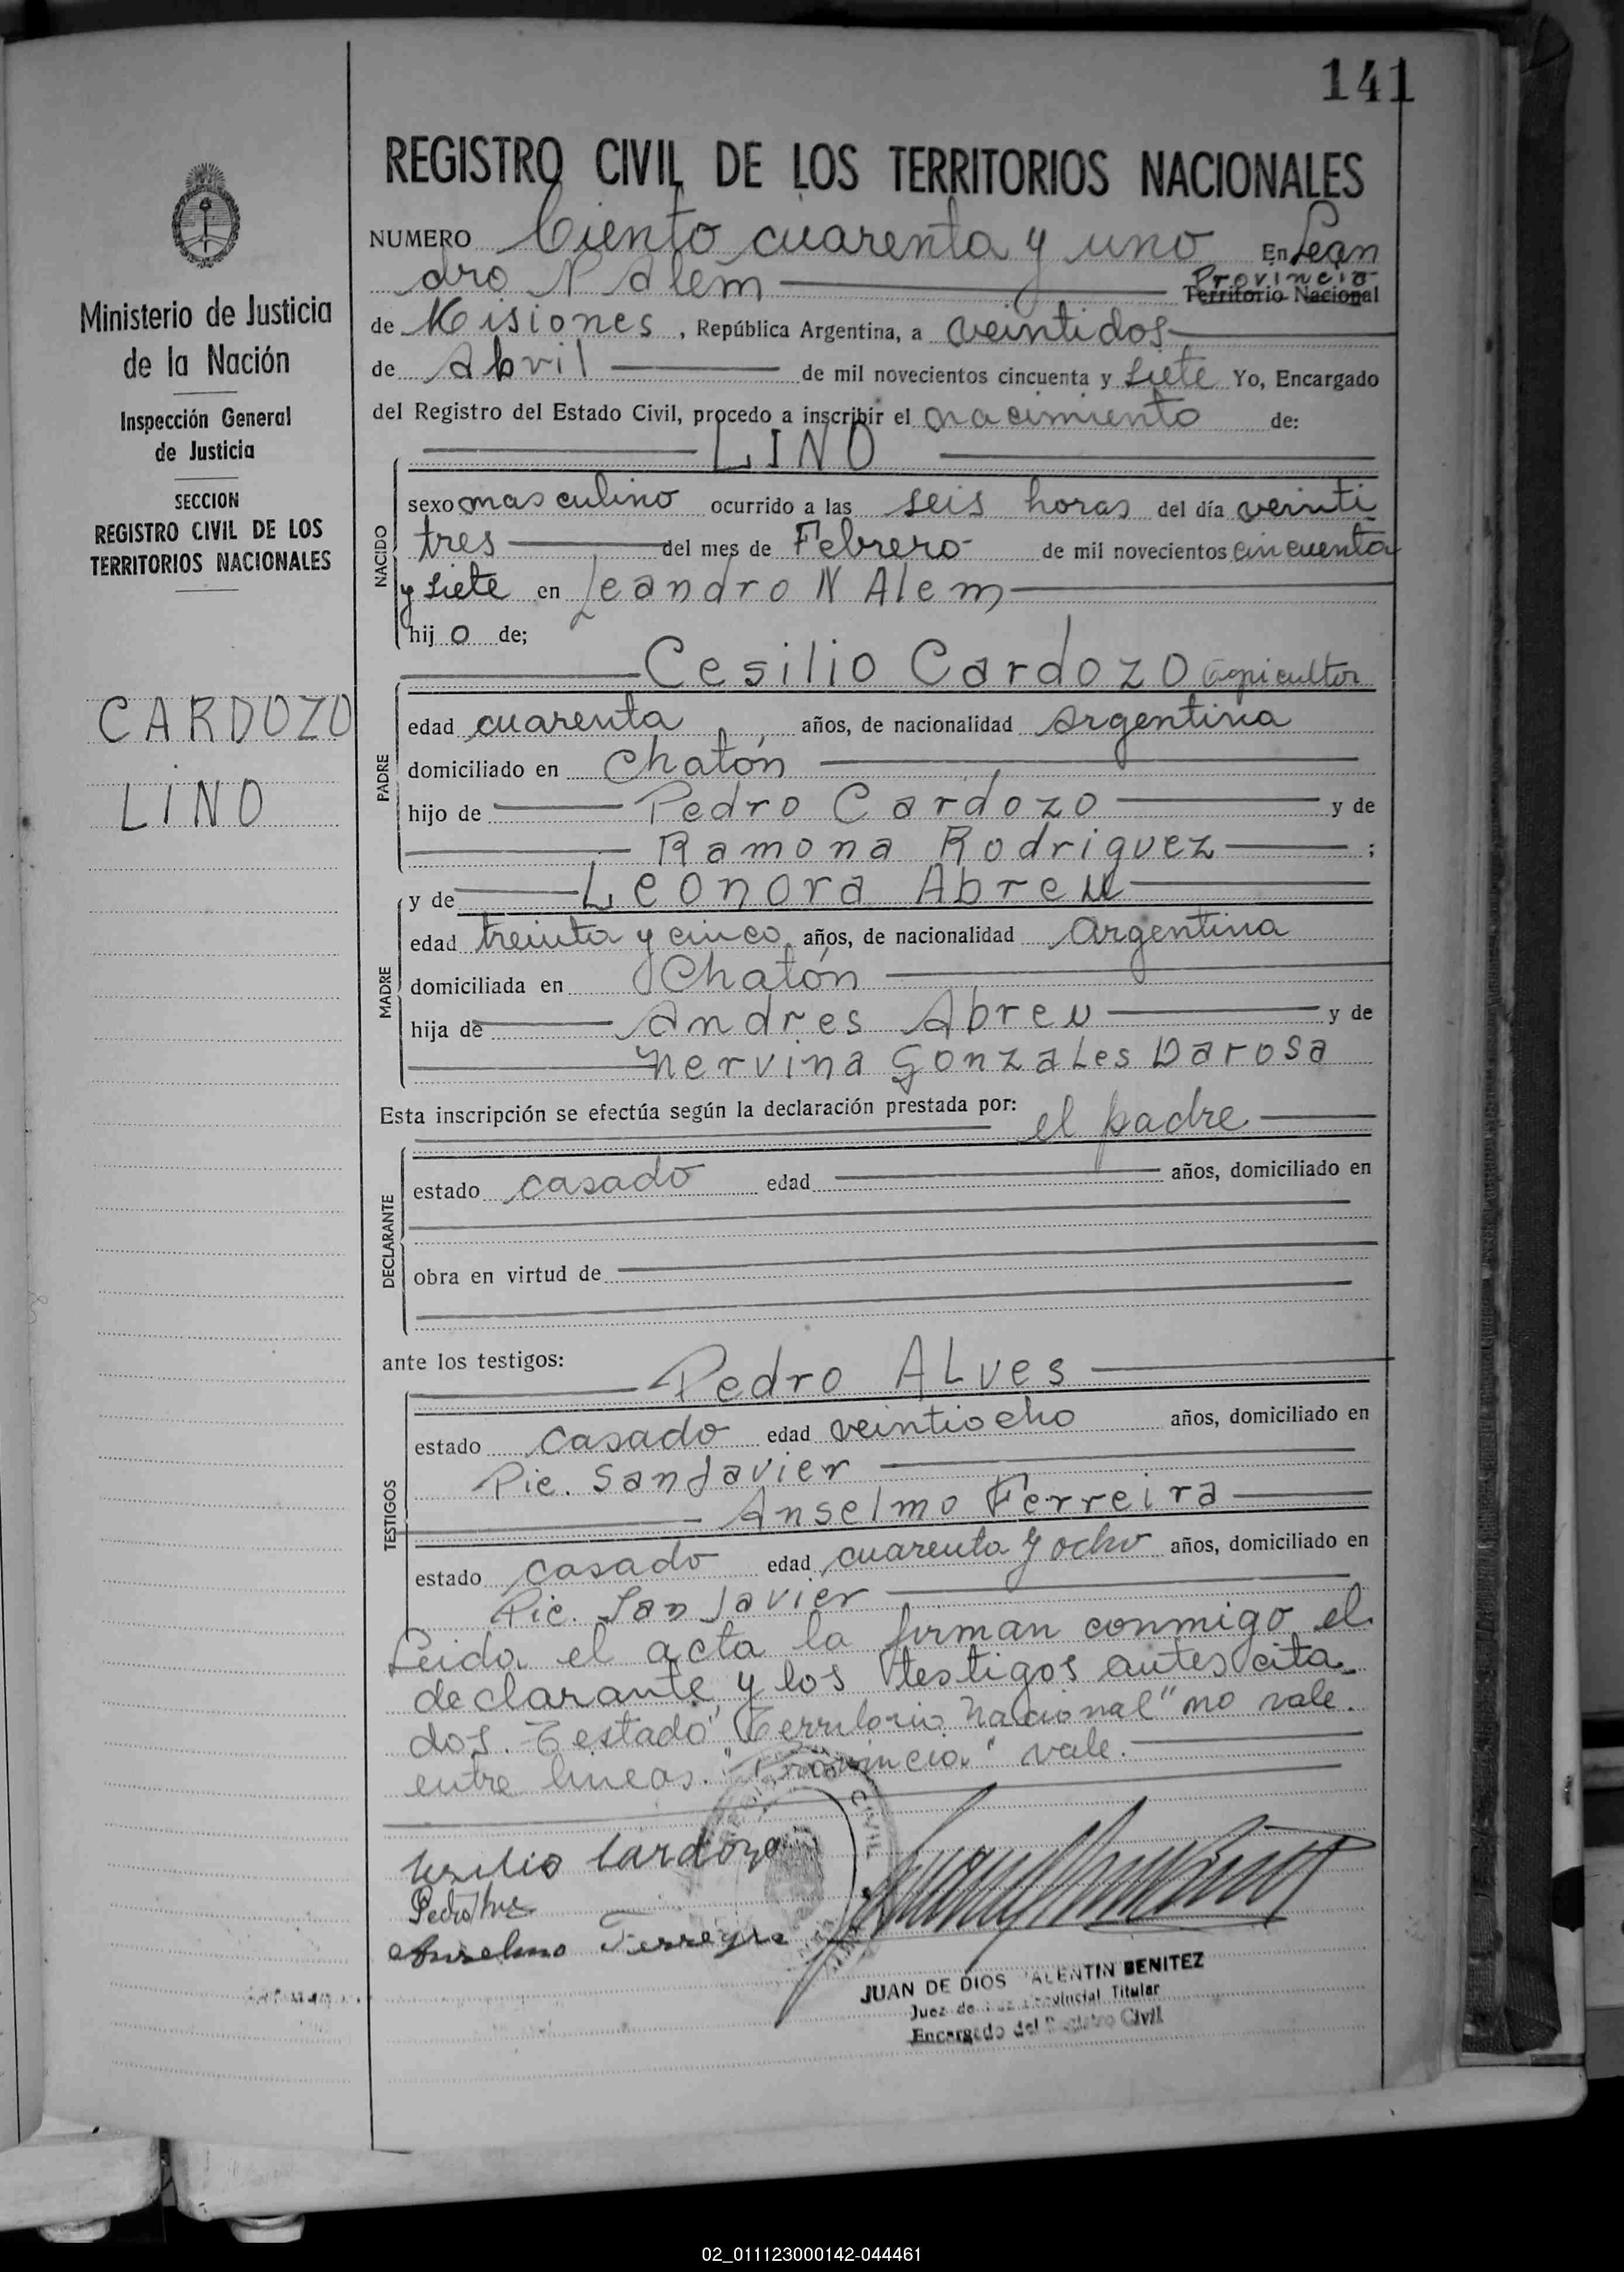 141
REGISTRO CIVIL DE LOS TERRITORIOS NACIONALES
NUMERO Ciento cuarenta y uno En Lean
dro N Alem Provincia
Territorio Nacional
de Misiones, República Argentina, a veintidos
de Abril de mil novecientos cincuenta y siete Yo, Encargado
del Registro del Estado Civil, procedo a inscribir el nacimiento de:
LINO
NACIDO
sexo masculino ocurrido a las seis horas del día veinti
tres del mes de Febrero de mil novecientos cincuenta
y siete en Leandro N Alem
hijo de;
Cesilio Cardozo agricultor
PADRE
edad cuarenta años, de nacionalidad Argentina
domiciliado en Chatón
hijo de Pedro Cardozo y de
Ramona Rodriguez ;
y de Leonora Abreu
MADRE
edad treinta y cinco años, de nacionalidad argentina
domiciliada en Chatón
hija de Andres Abreu y de
Nervina Gonzales Darosa
Esta inscripción se efectúa según la declaración prestada por: el padre
DECLARANTE
estado casado edad años, domiciliado en
obra en virtud de
ante los testigos:
Pedro ALves
TESTIGOS
estado casado edad veintiocho años, domiciliado en
Pic. San Javier
Anselmo Ferreira
estado casado edad cuarenta y ocho años, domiciliado en
Pic. San Javier
Leida el acta la firman conmigo el
declarante y los testigos antes cita
dos. Testado "Territorio Nacional" no vale.
entre lineas. "Provincia" vale.
Cesilio Cardozo
Pedro
Anselmo Ferreyra
CIVIL
JUAN DE DIOS VALENTIN BENITEZ
Juez de Paz Provincial Titular
Encargado del Registro Civil
Ministerio de Justicia
de la Nación
Inspección General
de Justicia
SECCION
REGISTRO CIVIL DE LOS
TERRITORIOS NACIONALES
CARDOZO
LINO
02_011123000142-044461